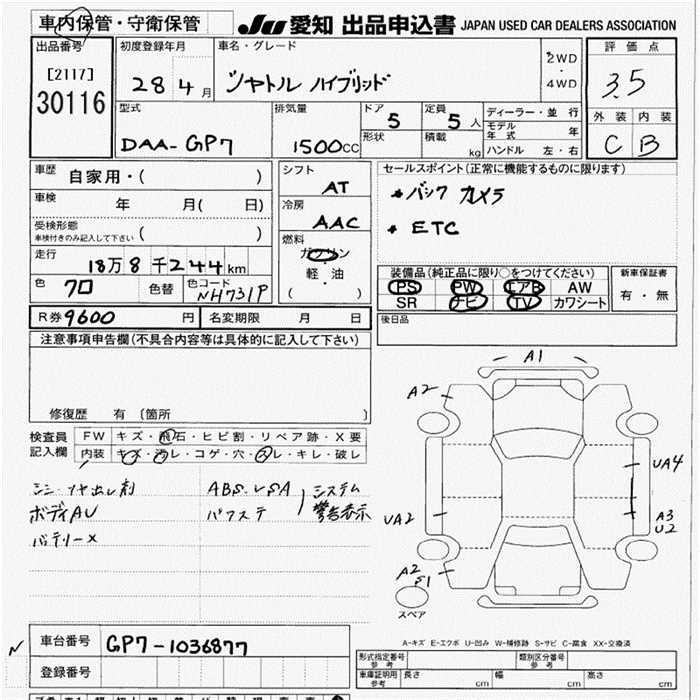 車内保管・守衛保管
JU 愛知 出品申込書 JAPAN USED CAR DEALERS ASSOCIATION
出品番号
[2117]
30116
初度登録年月
28 4月
車名・グレード
シャトル ハイブリッド
2WD
・
4WD
評価点
3.5
型式
DAA-GP7
排気量
1500cc
ドア 5
形状
定員 5人
積載 kg
ディーラー・並行
モデル年式 年
ハンドル 左・右
外装 内装
C B
車歴 自家用・( )
車検 年 月( 日)
受検形態
車検付きのみ記入して下さい ( )
走行
18万8千244km
色 クロ 色替 色コード
NH731P
シフト
AT
冷房
AAC
燃料
ガソリン
・
軽・油
( )
セールスポイント(正常に機能するものに限ります)
*バックカメラ
*ETC
装備品(純正品に限り○をつけてください)
PS PW エアB AW
SR ナビ TV カワシート
新車保証書
有・無
R券 9600円 名変期限 月 日
後日品
注意事項申告欄(不具合内容等は具体的に記入して下さい)
修復歴 有〔箇所 〕
検査員
記入欄
FW キズ・飛石・ヒビ割・リペア跡・X要
内装 キズ・汚レ・コゲ・穴・スレ・キレ・破レ
シミ
ボディAU
バッテリーX
ABS.VSA
パワステ
システム
警告表示
A1
A2
UA4
UA2
A3
U2
A2
S1
スペア
A-キズ E-エクボ U-凹み W-補修跡 S-サビ C-腐食 XX-交換済
N
車台番号 GP7-1036877
登録番号
形式指定番号
参考
類別区分番号
参考
車庫証明用
参考
長さ cm 幅 cm 高さ cm